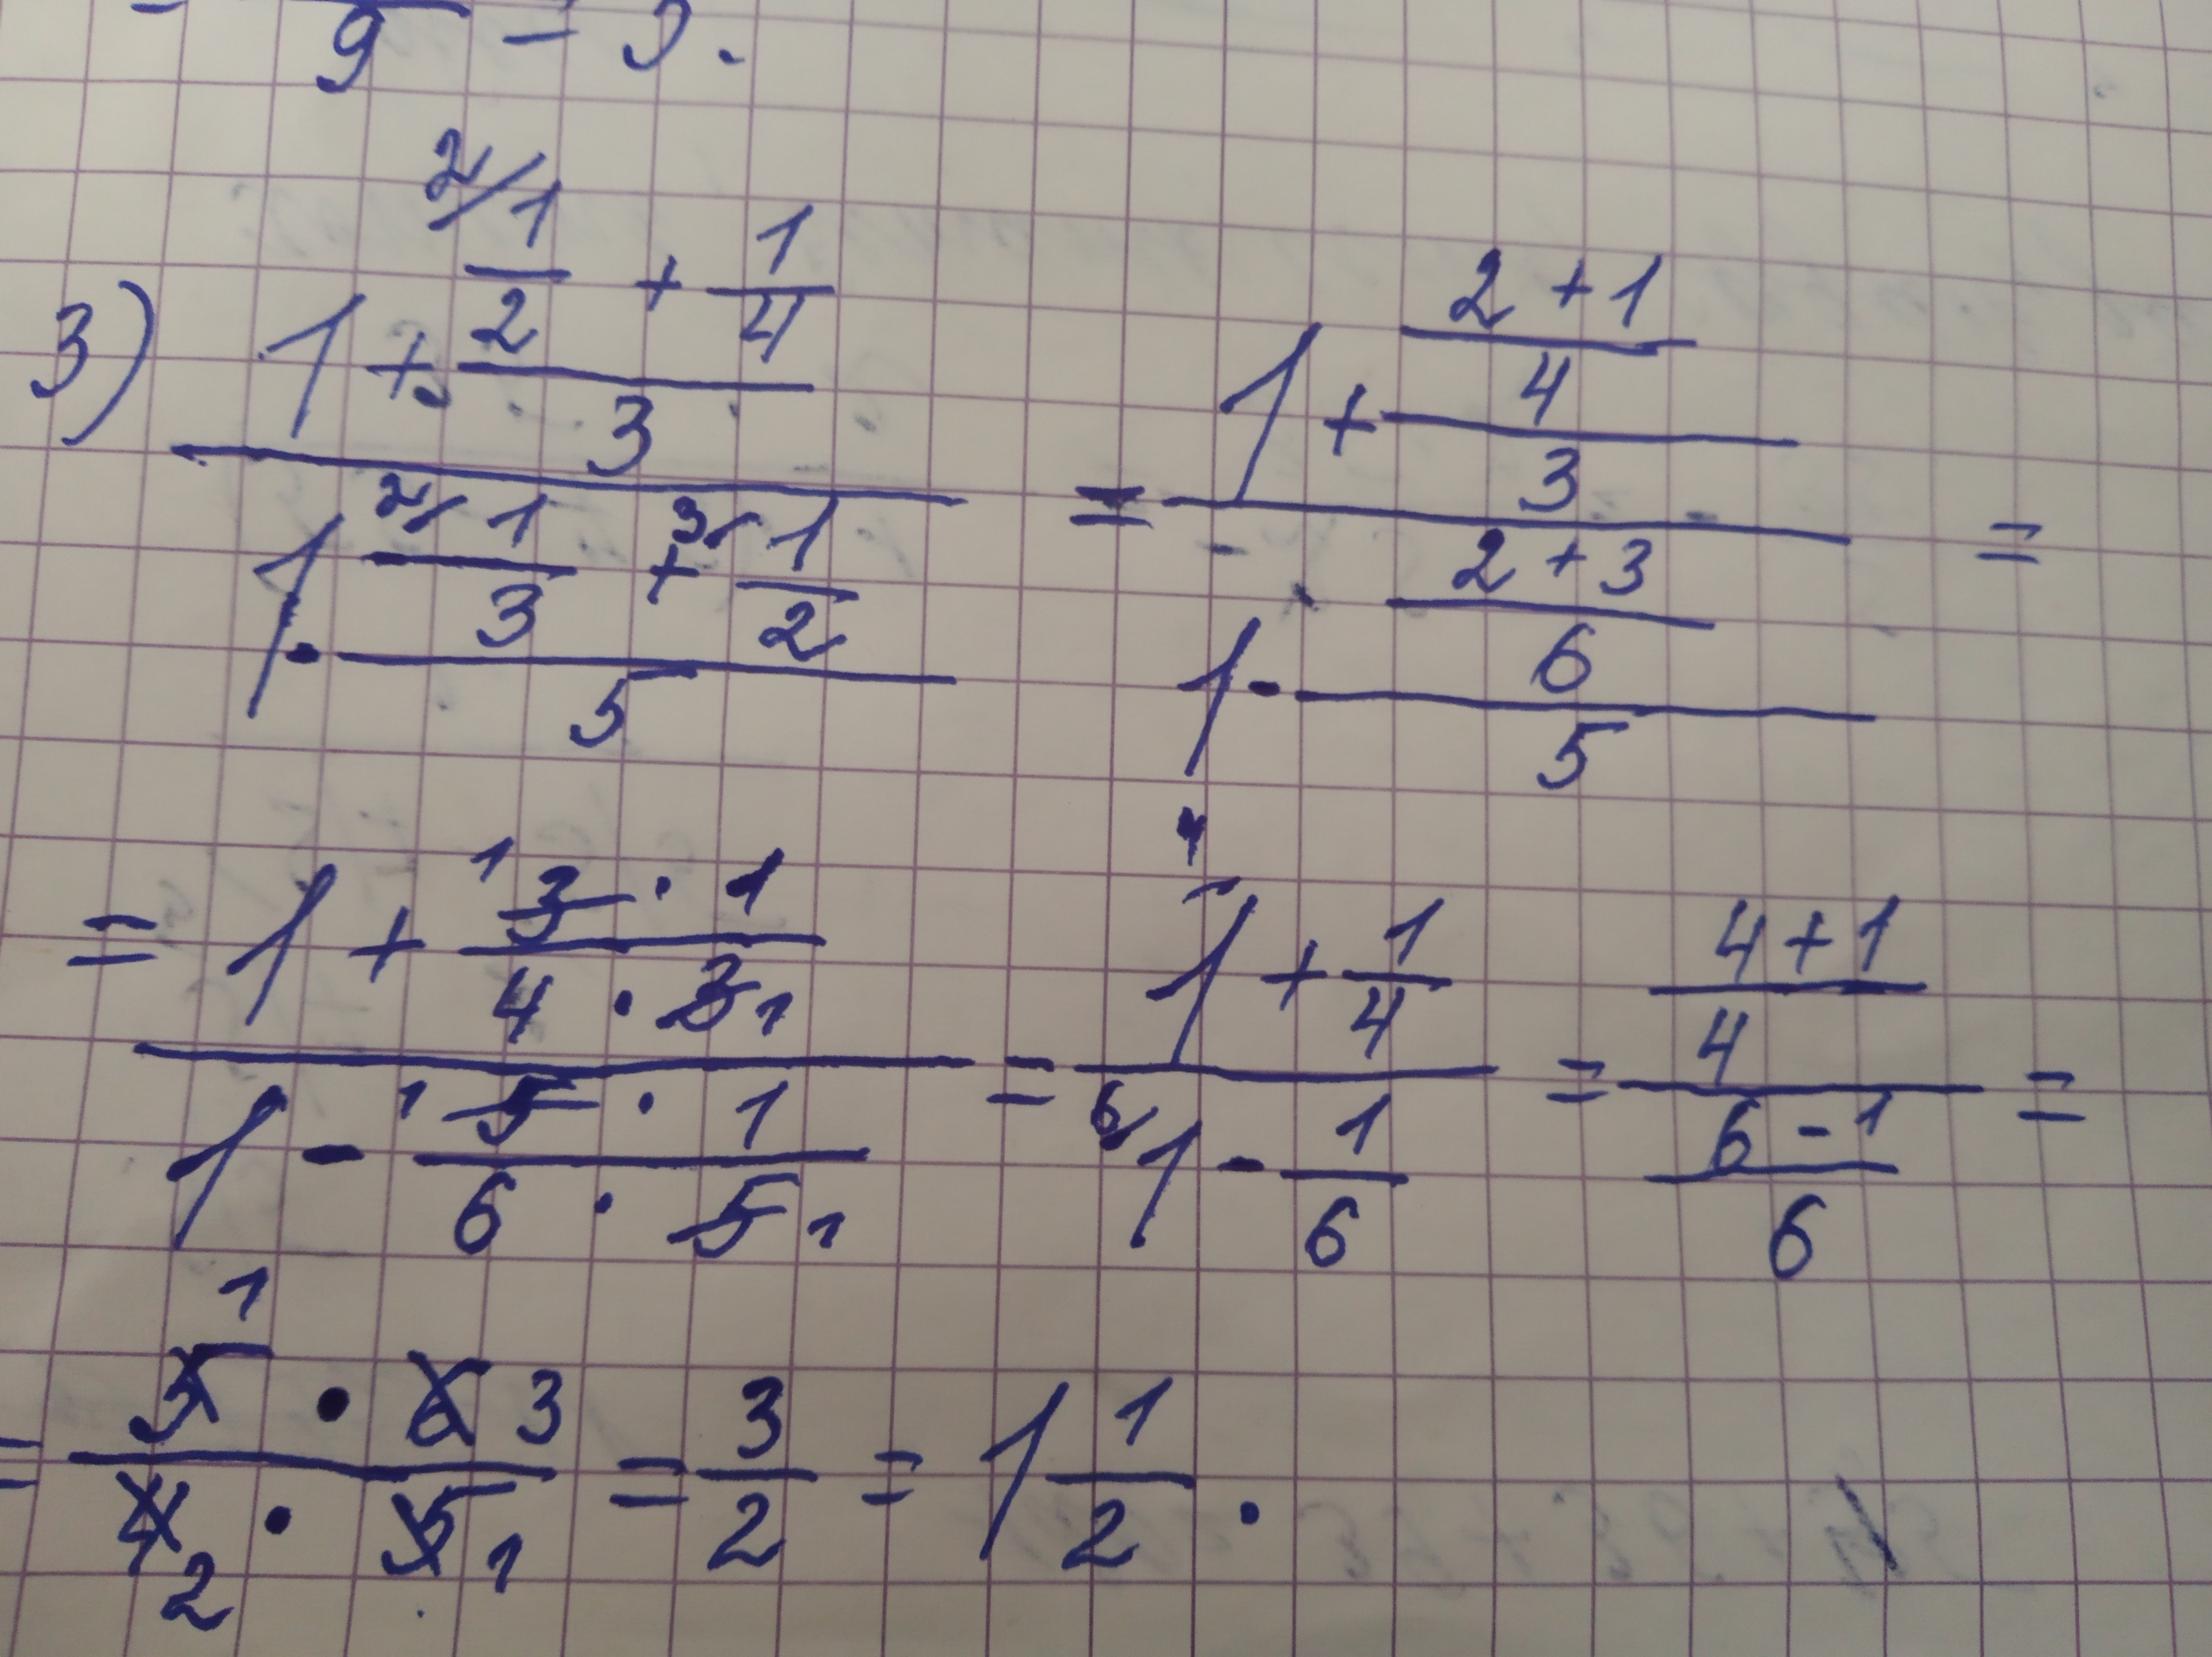 9 = 9.
3) (1 + (1/2 + 1/4)/3)/(1 - (1/3 + 1/2)/5) = (1 + ((2+1)/4)/3)/(1 - ((2+3)/6)/5) =
= (1 + (3 · 1)/(4 · 3))/(1 - (5 · 1)/(6 · 5)) = (1 + 1/4)/(1 - 1/6) = ((4+1)/4)/((6-1)/6) =
= (5 · 6)/(4 · 5) = 3/2 = 1 1/2.